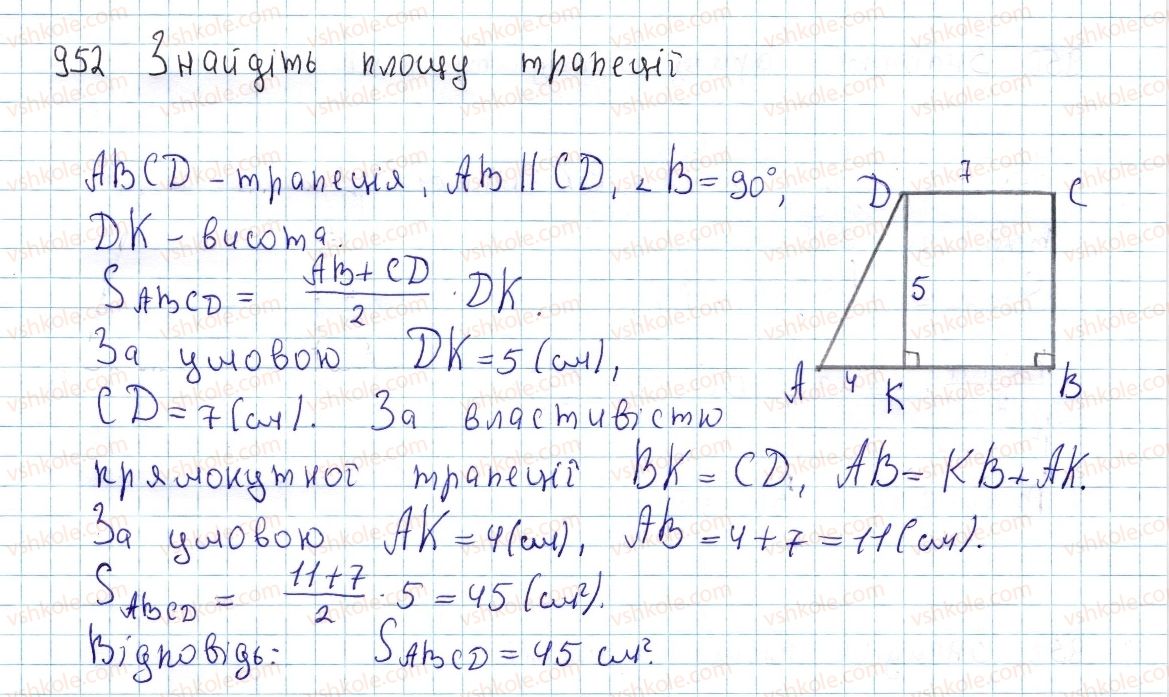 952 Знайдіть площу трапеції
ABCD – трапеція, AB || CD, ∠B = 90°,
DK – висота.
S ABCD = (AB + CD)/2 · DK.
За умовою DK = 5 (см),
CD = 7 (см). За властивістю
прямокутної трапеції BK = CD, AB = KB + AK.
За умовою AK = 4 (см), AB = 4 + 7 = 11 (см).
S ABCD = (11 + 7)/2 · 5 = 45 (см²).
Відповідь: S ABCD = 45 см².
7
D C
5
A 4 K B
vshkole.com